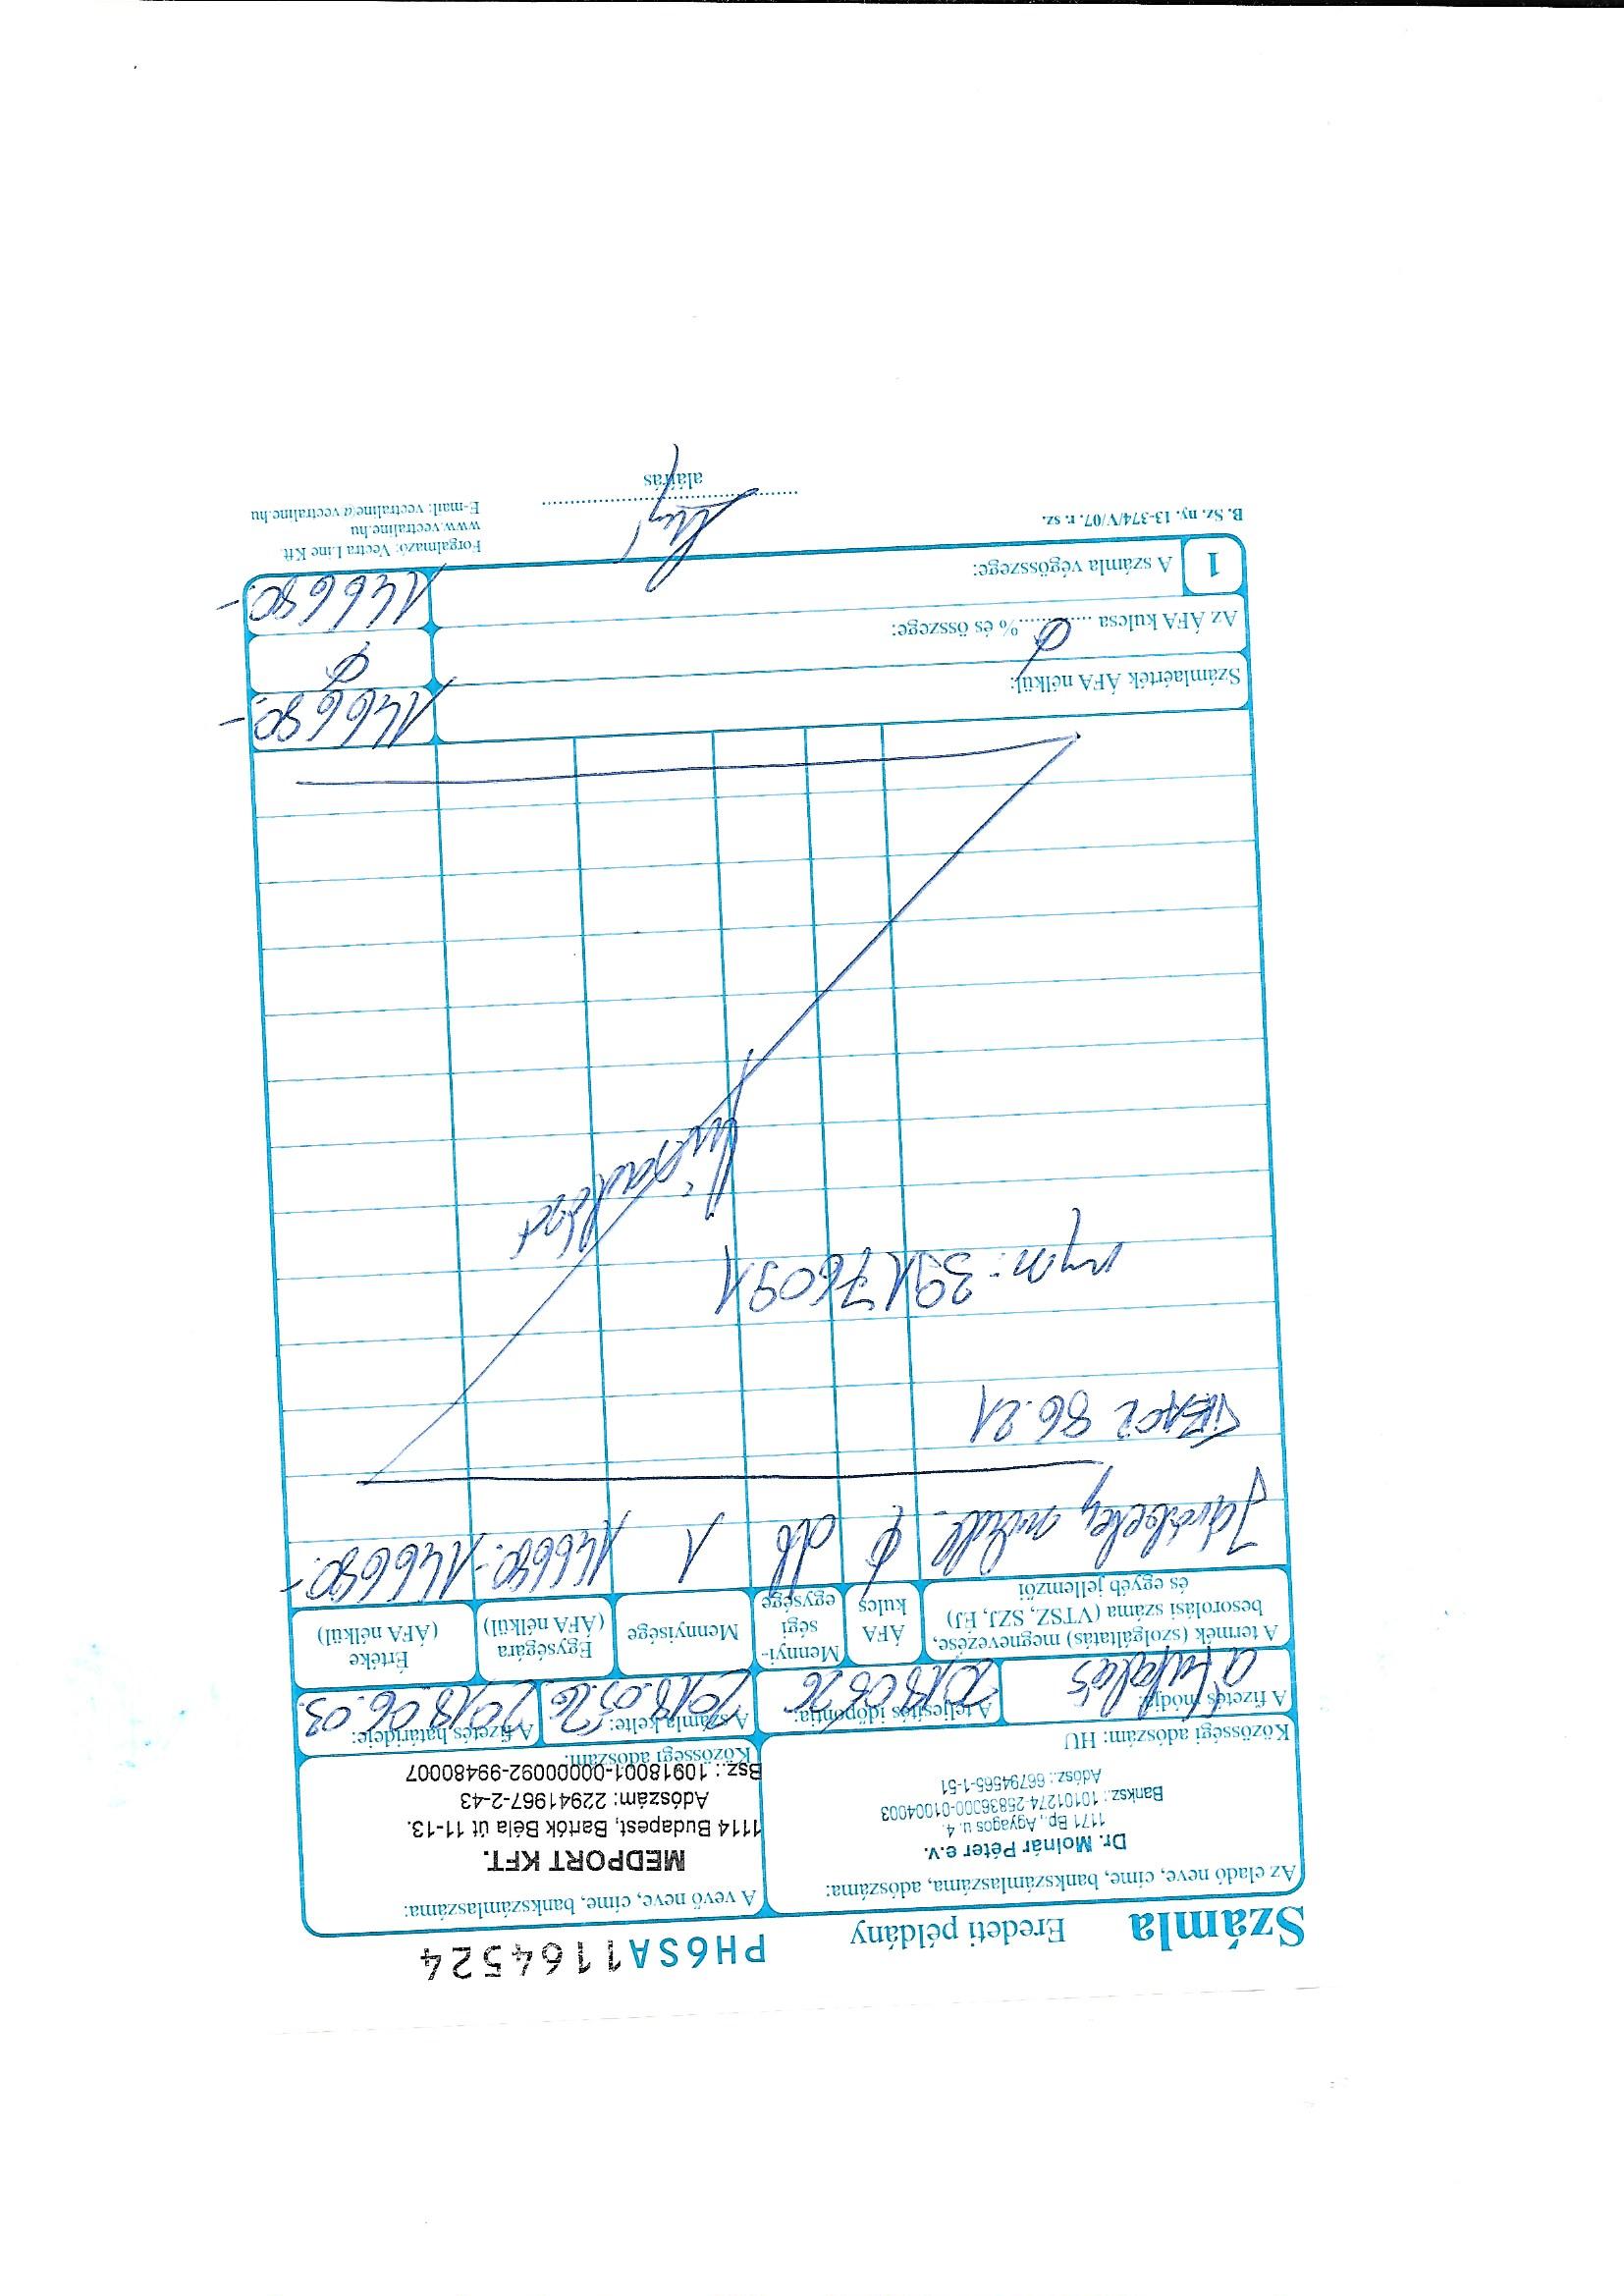 Számla Eredeti példány PH6SA1164524
Az eladó neve, címe, bankszámlaszáma, adószáma:
Dr. Molnár Péter e.v.
1171 Bp., Agyagos u. 4.
Banksz.: 10101274-25836000-01004003
Adósz.: 66794565-1-51
Közösségi adószám: HU
A vevő neve, címe, bankszámlaszáma:
MEDPORT KFT.
1114 Budapest, Bartók Béla út 11-13.
Adószám: 22941967-2-43
Bsz.: 10918001-00000092-99480007
Közösségi adószám:
A fizetés módja:
átutalás
A teljesítés időpontja:
2018 05 26
A számla kelte:
2018.05.26.
A fizetés határideje:
2018.06.03.
A termék (szolgáltatás) megnevezése, besorolási száma (VTSZ, SZJ, ÉJ) és egyéb jellemzői
ÁFA kulcs
Mennyi-
ségi
egysége
Mennyisége
Egységára
(ÁFA nélkül)
Értéke
(ÁFA nélkül)
Járóbeteg φ db 1 146680.- 146680.-
86.21
nym: 39176091
Számlaérték ÁFA nélkül: 146680.-
Az ÁFA kulcsa φ % és összege: φ
1 A számla végösszege: 146680.-
B. Sz. ny. 13-374/V/07. r. sz.
aláírás
Forgalmazó: Vectra Line Kft
www.vectraline.hu
E-mail: vectraline@vectraline.hu